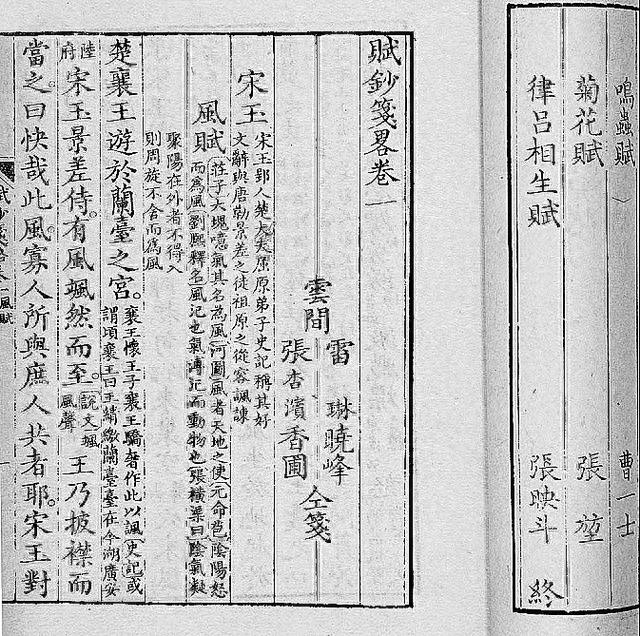 鳴蟲賦 曹一士
菊花賦 張堃
律呂相生賦 張映斗 終
賦鈔箋畧卷一
雲間 雷琳曉峰
張杏濱香圃 仝箋
宋玉 宋玉郢人楚大夫屈原弟子史記稱其好
文辭與唐勒景差之徒祖原之從容諷諫
風賦 莊子大塊噫氣其名為風河圖風者天地之使元命苞陰陽怒
而為風劉熙釋名風汜也氣溥汜而動物也張橫渠曰陰氣凝
聚陽在外者不得入
則周旋不舍而為風
楚襄王遊於蘭臺之宮。襄王懷王子襄王驕奢作此以諷史記或
謂頃襄王曰王綪繳蘭臺臺在今湖廣安
陸府 宋玉景差侍。有風颯然而至。說文颯風聲 王乃披襟而
當之曰快哉此風。寡人所與庶人共者耶。宋玉對